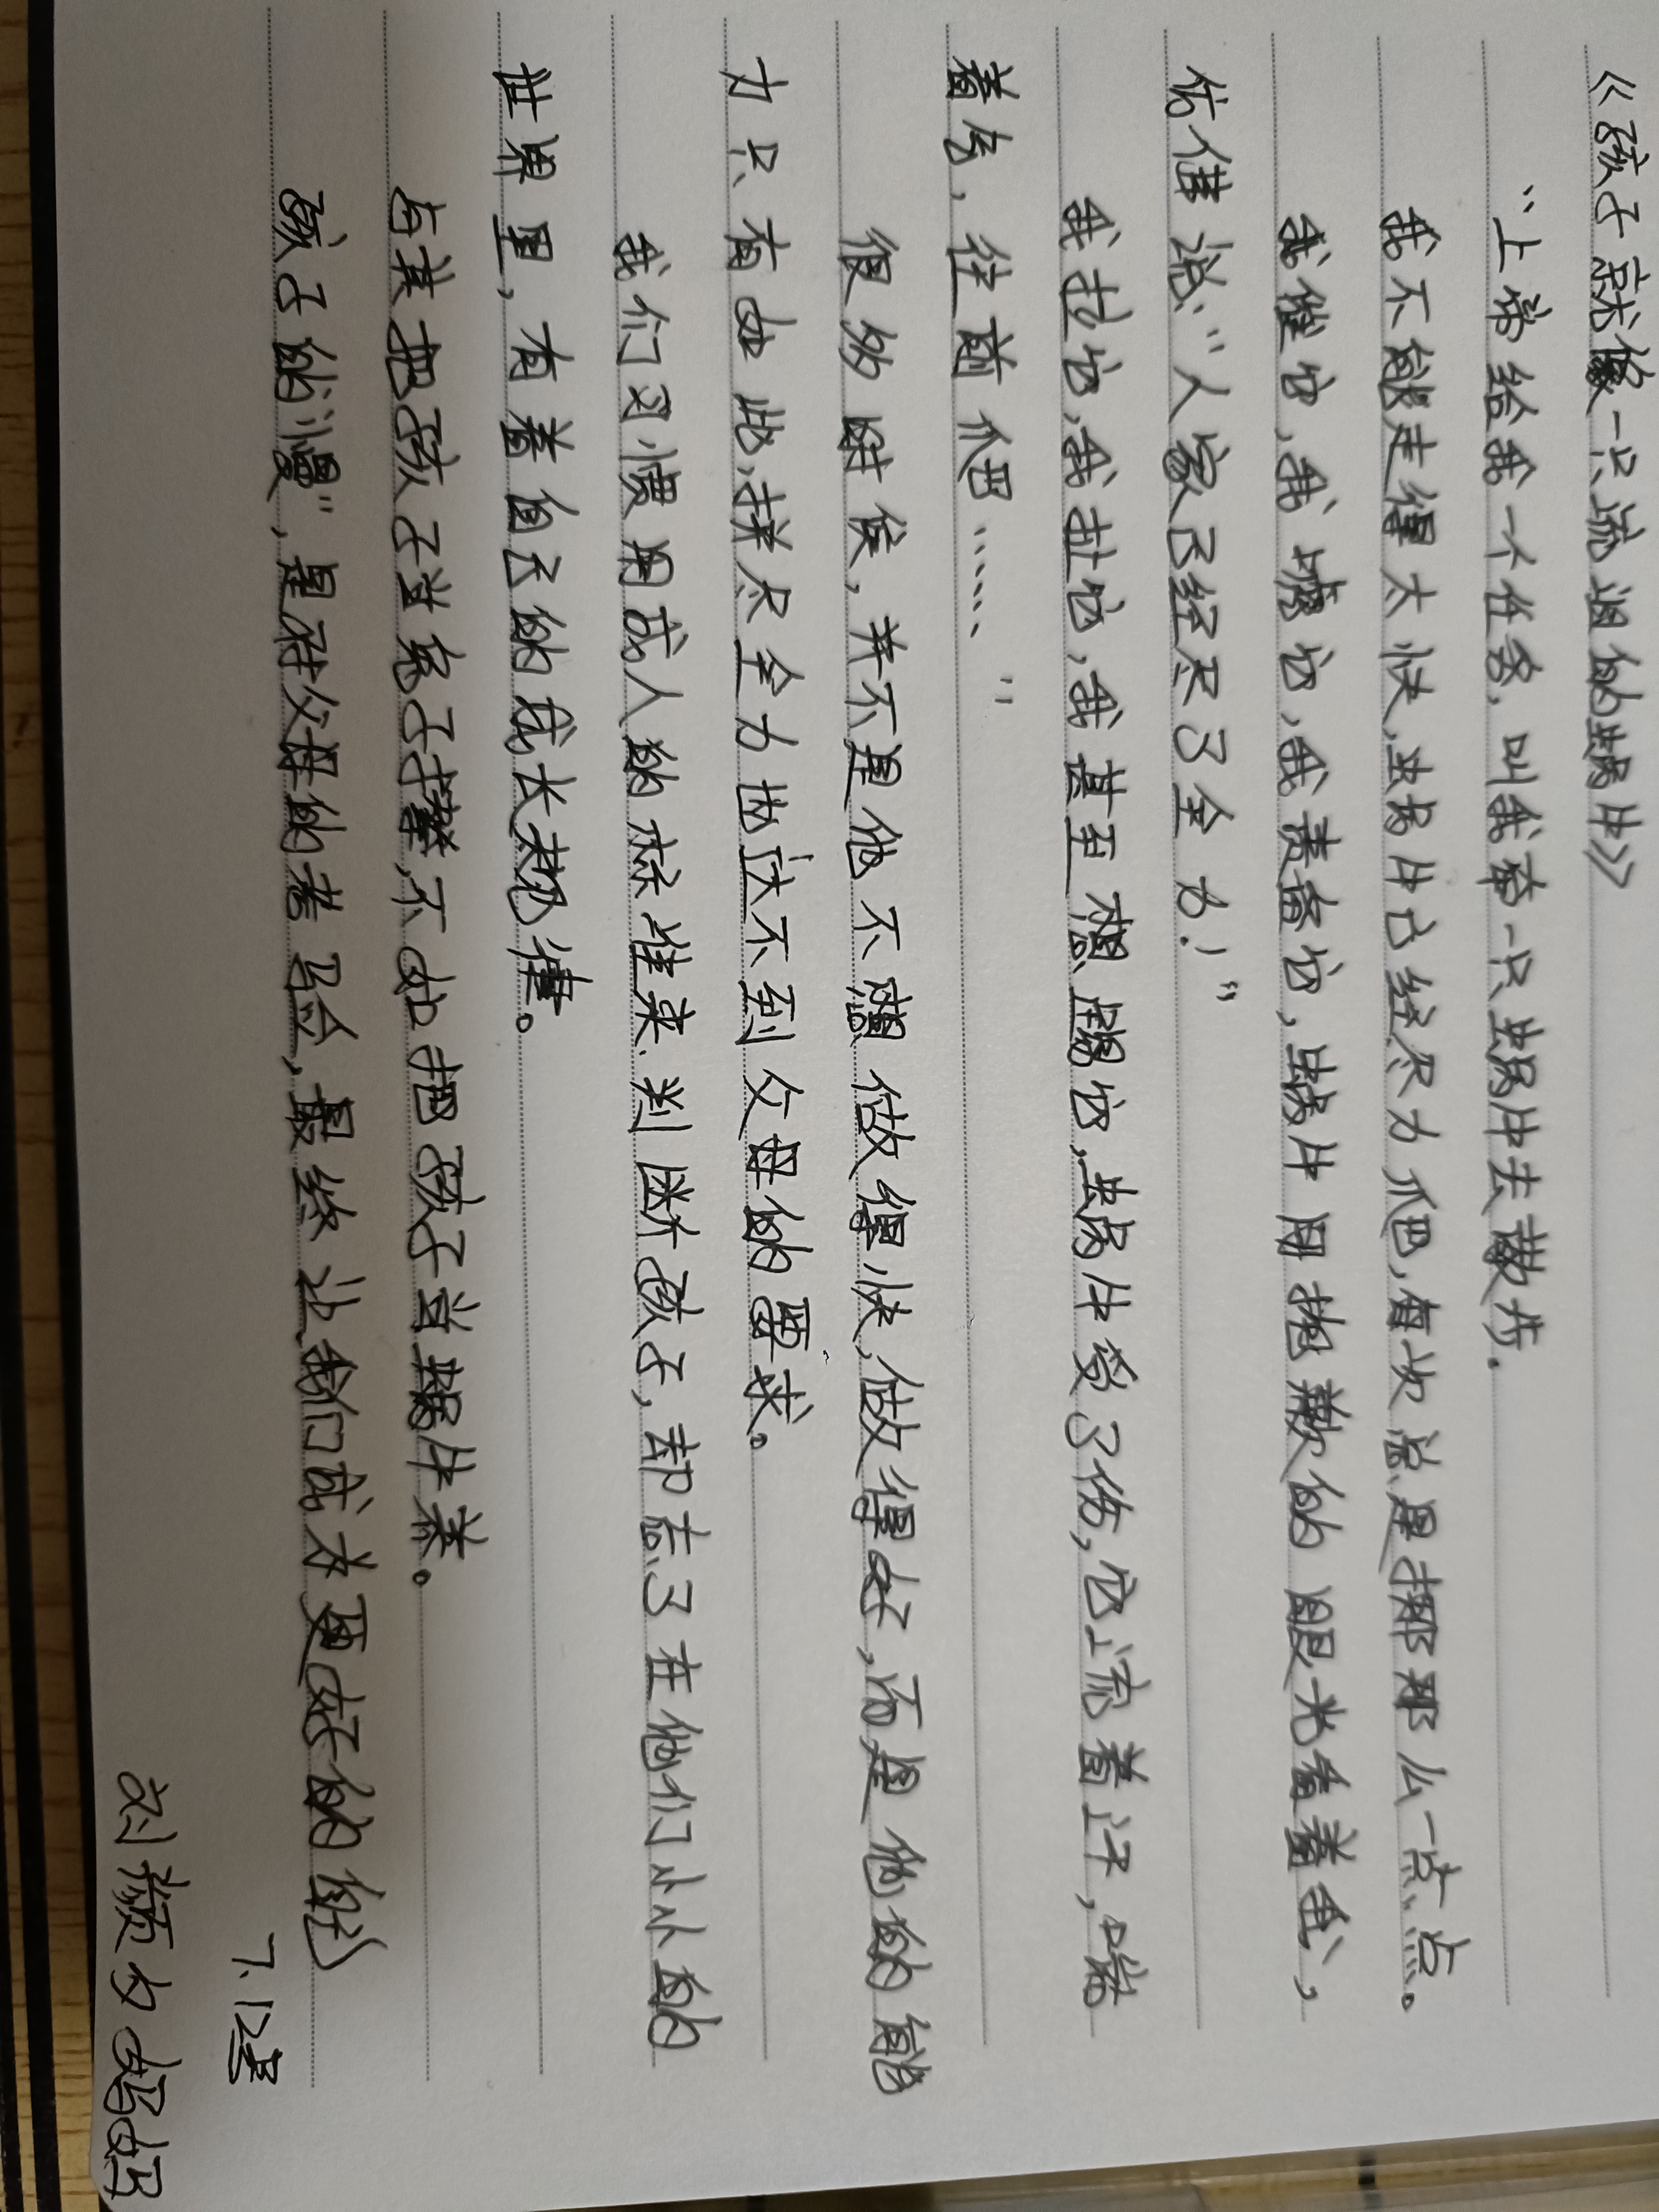 《孩子就像一只流泪的蜗牛》
“上帝给我一个任务，叫我牵一只蜗牛去散步.
我不能走得太快,蜗牛已经尽力爬,每次总是挪那么一点点。
我催它,我唬它,我责备它,蜗牛用抱歉的眼光看着我,
仿佛说:“人家已经尽了全力!”
我拉它,我扯它,我甚至想踢它,蜗牛受了伤,它流着汗,喘
着气,往前爬……”
很多时候,并不是他不想做得快,做得好,而是他的能
力只有如此,拼尽全力也达不到父母的要求。
我们习惯用成人的标准来判断孩子,却忘了在他们小小的
世界里,有着自己的成长规律。
与其把孩子当兔子撵,不如把孩子当蜗牛养。
孩子的“慢”,是对父母的考验,最终让我们成为更好的自己
7.12号
刘颜夕妈妈